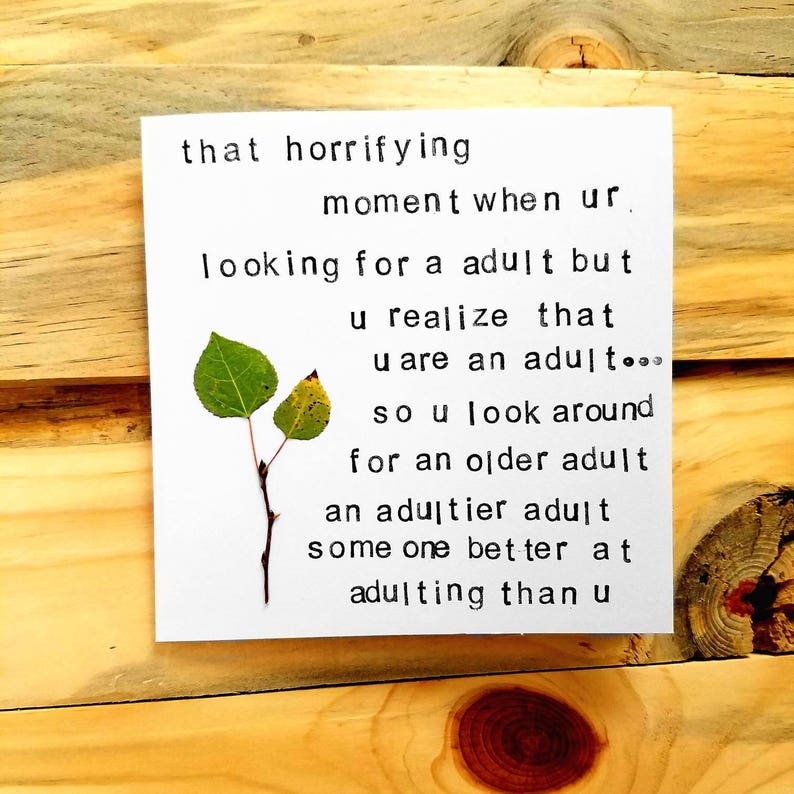 that horrifying
moment when ur.
looking for a adult but
u realize that
u are an adult...
so u look around
for an older adult
an adultier adult
some one better at
adulting than u